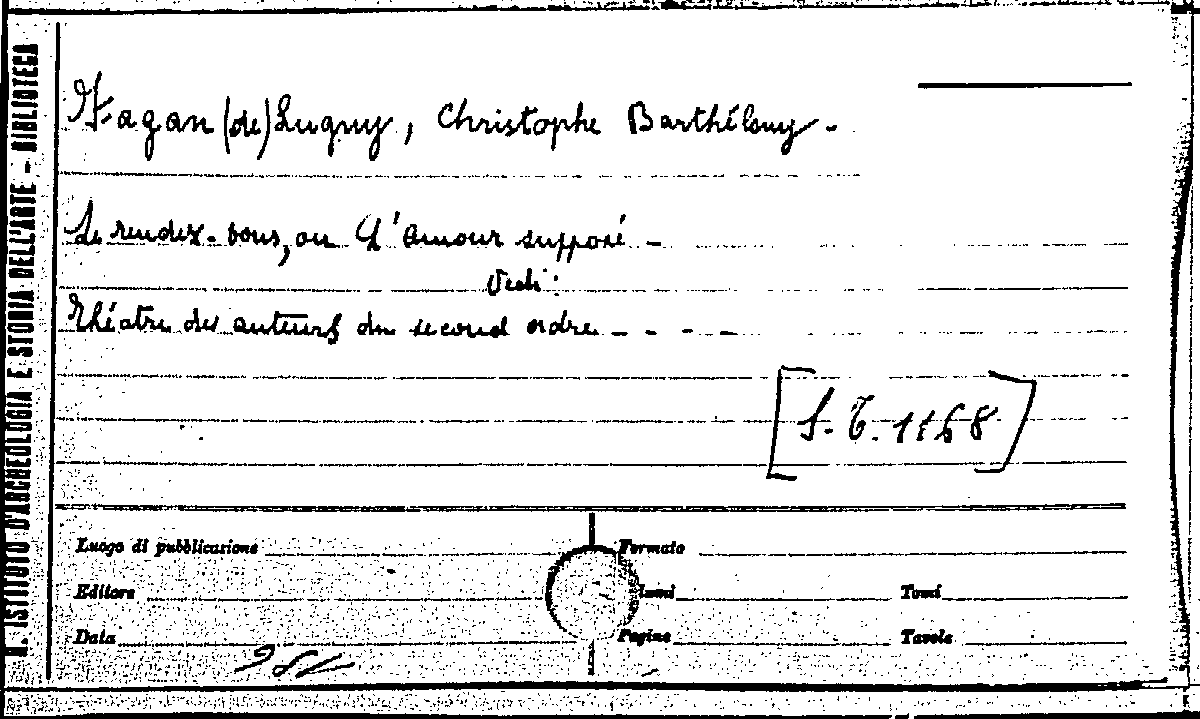 R. ISTITUTO D'ARCHEOLOGIA E STORIA DELL'ARTE - BIBLIOTECA
Fagan (de) Lugny, Christophe Barthélemy -
Le rendez-vous, ou L'amour supposé -
Vedi:
Théatre des auteurs du second ordre - - - -
[S. T. 1168]
Luogo di pubblicazione
Formato
Editore
Tomi
Data
Pagine
Tavole